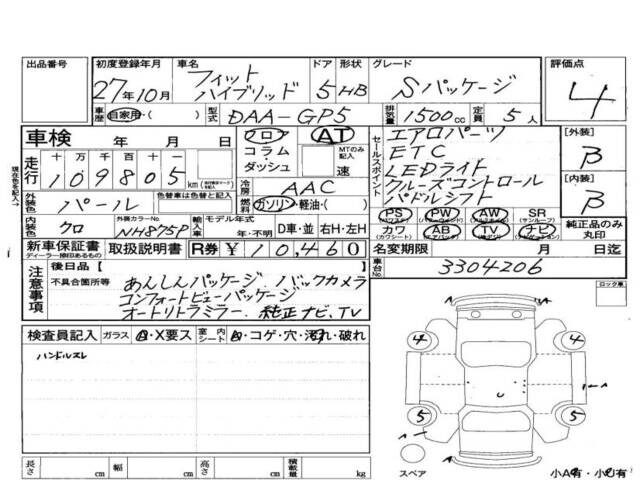 出品番号 初度登録年月 車名 ドア 形状 グレード 評価点
27年10月 フィット ハイブリッド 5 HB Sパッケージ 4
車歴 自家用・( ) 型式 DAA-GP5 排気量 1500cc 定員 5人
車検 年 月 日 フロア AT エアロパーツ [外装]
コラム・ダッシュ MTのみ記入 速 セールスポイント ETC B
走行 十万千百十一 LEDライト
109805 km 冷房 AAC クルーズコントロール [内装]
外装色 パール 色替車は色替色を記入 燃料 ガソリン・軽油・( ) パドルシフト B
内装色 クロ 外装カラーNo. NH875P 輸入車 モデル年式 年・不明 D車・並 右H・左H PS PW AW SR 純正品のみ丸印
(パワステ) (パワーウィンドウ) (サンルーフ)
カワ AB TV ナビ
(カワシート) (エアバッグ)
新車保証書 取扱説明書 R券 ¥10,460 名変期限 月 日迄
ディーラー捺印あるもの
現在色を記入→
注意事項 後日品[ ] 車台No. 3304206
不具合箇所等 あんしんパッケージ.バックカメラ ロック車
コンフォートビューパッケージ
オートリトラミラー.純正ナビ.TV
検査員記入 ガラス A・X要ス 室内シート A・コゲ・穴・汚れ・破れ
ハンドルスレ
4 4
A
5 5
長さ cm 幅 cm 高さ cm 積載量 kg
スペア A 小A有・小U有